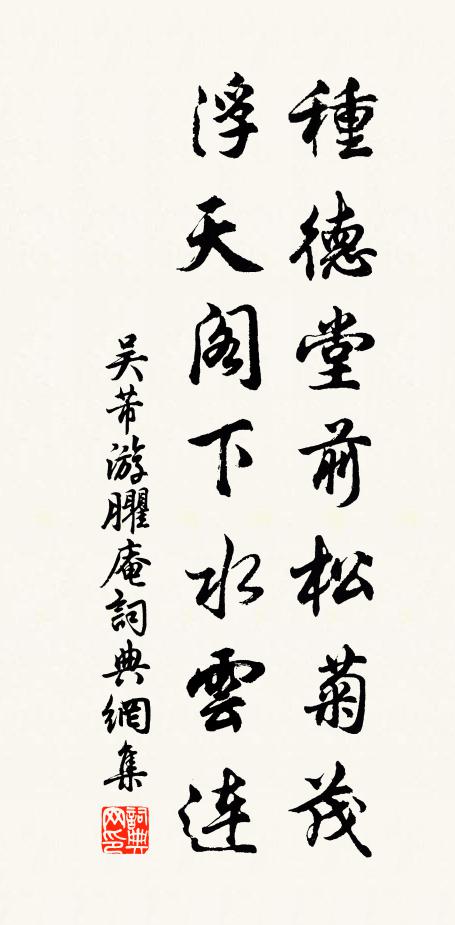 種德堂前松菊茂
浮天閣下水雲連
吴芾游臞庵詞典網集
詞典网印